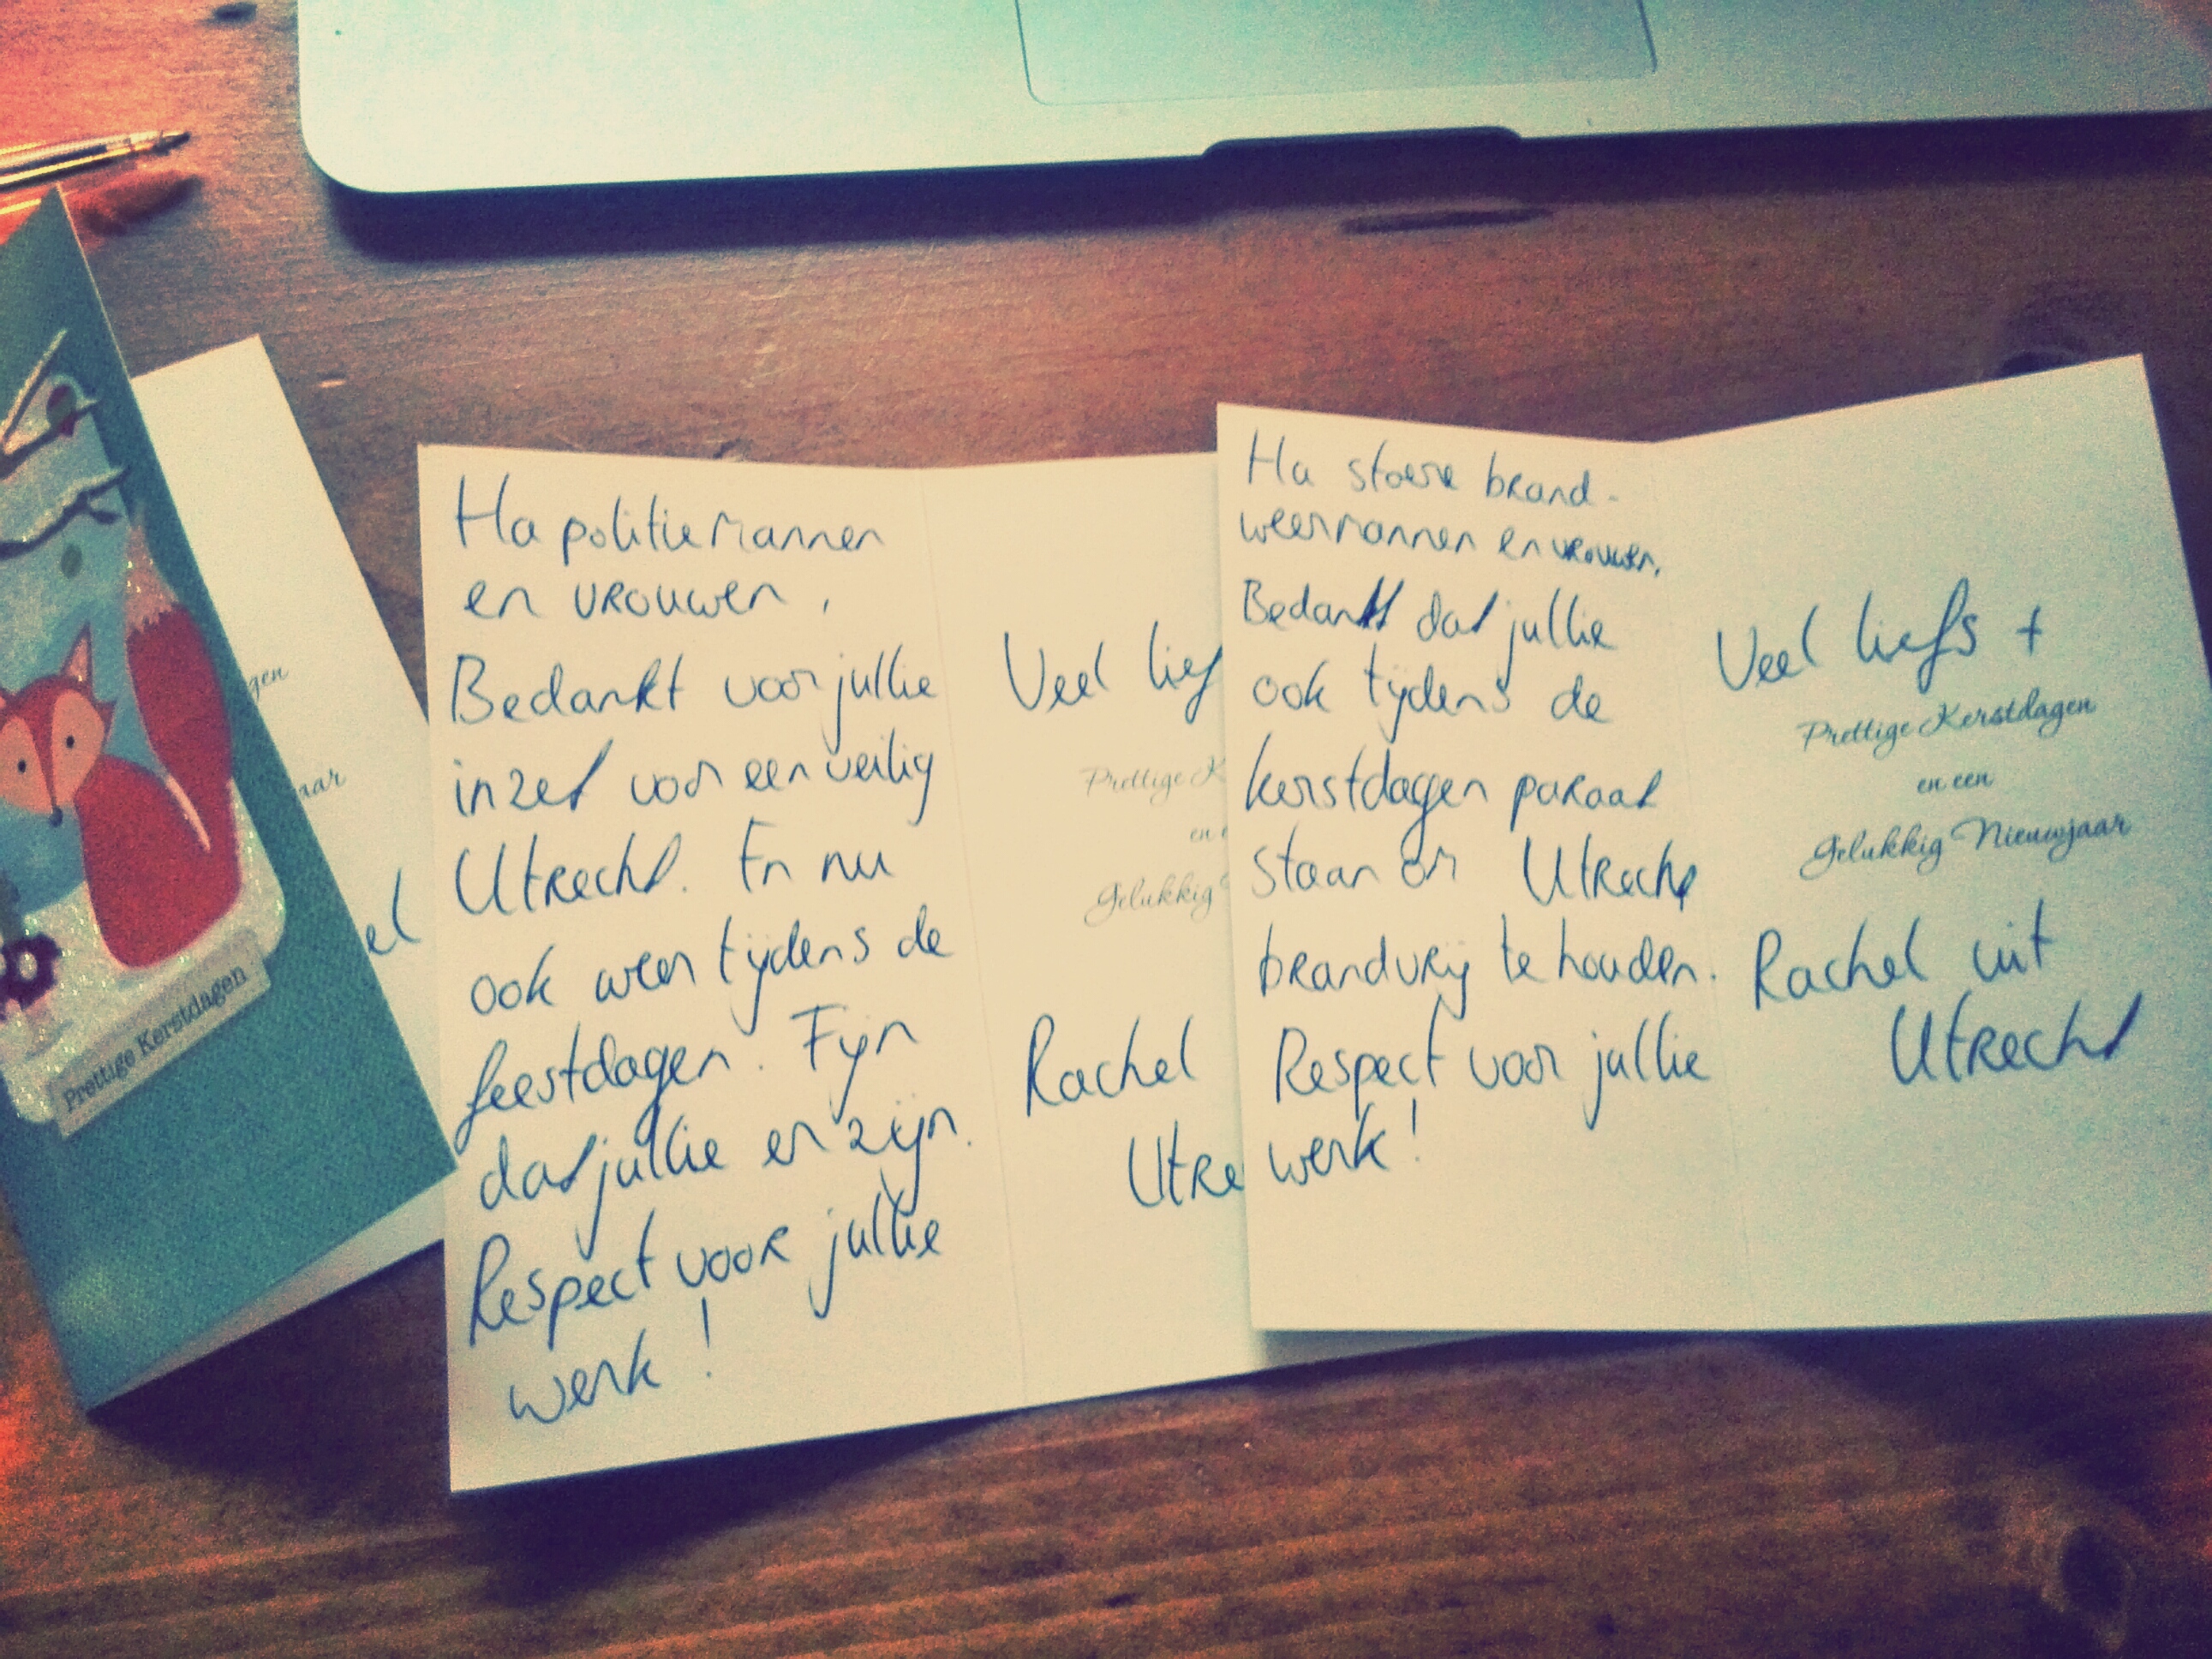 Prettige Kerstdagen
gen
aar
el
Ha politiemannen
en vrouwen,
Bedankt voor jullie
inzet voor een veilig
Utrecht. En nu
ook weer tijdens de
feestdagen. Fijn
dat jullie er zijn.
Respect voor jullie
werk!
Veel lief
Prettige K
en e
Gelukkig
Rachel
Utre
Ha stoere brand-
weermannen en vrouwen,
Bedankt dat jullie
ook tijdens de
kerstdagen paraat
staan om Utrecht
brandvrij te houden.
Respect voor jullie
werk!
Veel liefs +
Prettige Kerstdagen
en een
Gelukkig Nieuwjaar
Rachel uit
Utrecht